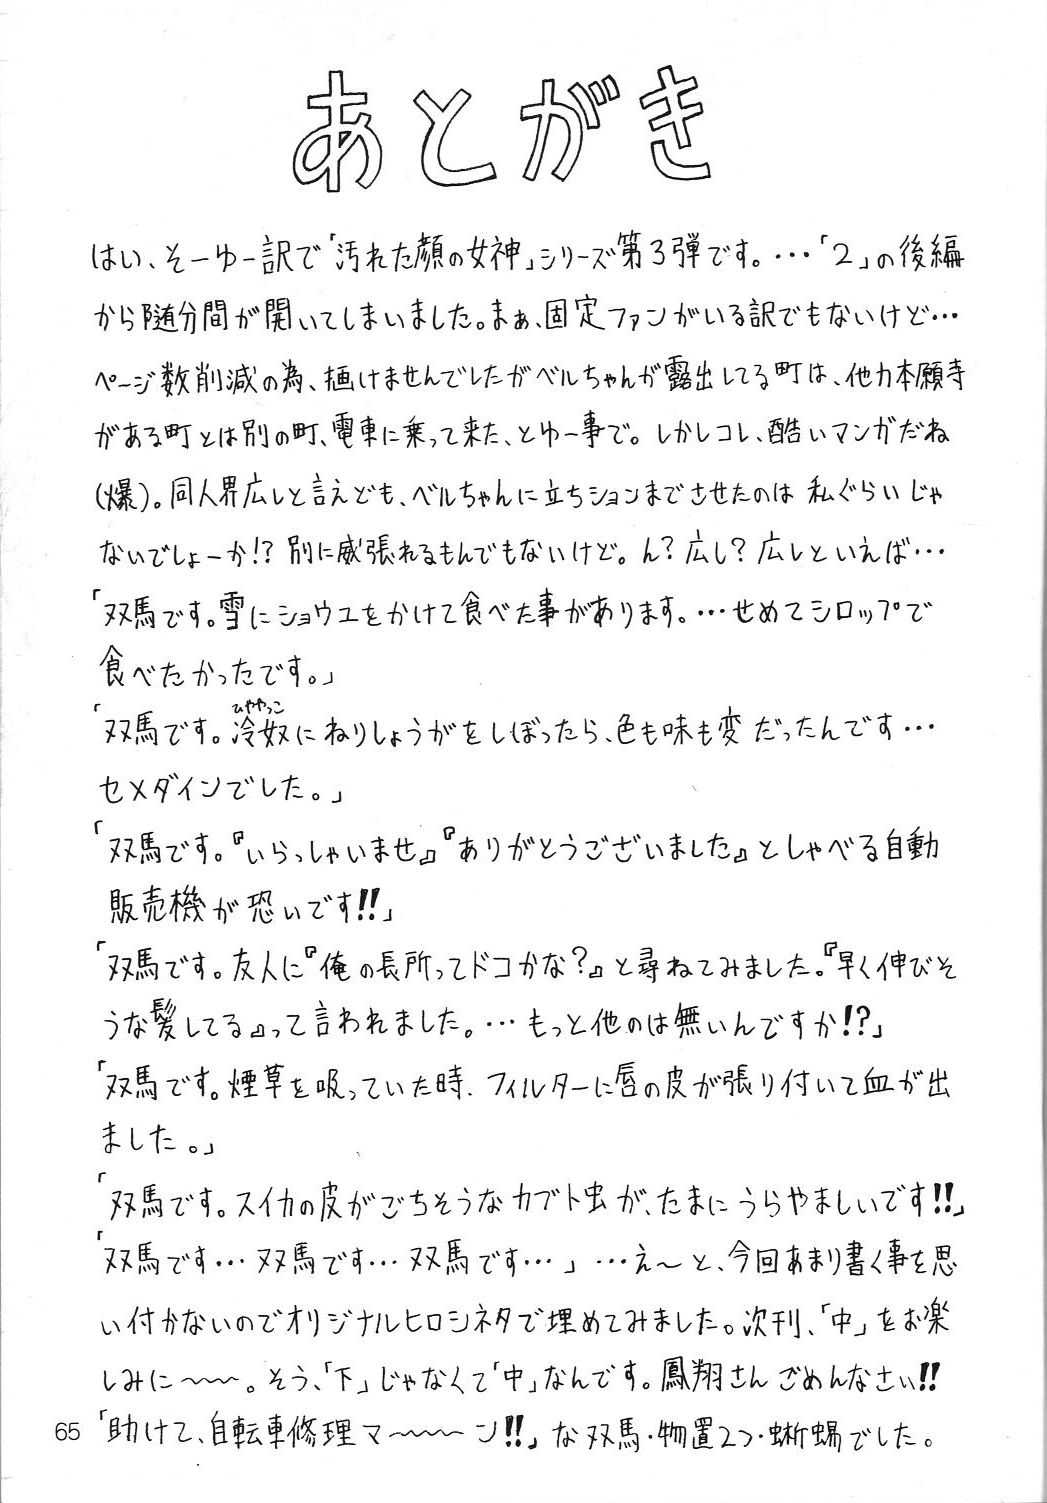 あとがき
はい、そーゆー訳で「汚れた顔の女神」シリーズ第3弾です。…「2」の後編
から随分間が開いてしまいました。まぁ、固定ファンがいる訳でもないけど…
ページ数削減の為、描けませんでしたがベルちゃんが露出してる町は、他力本願寺
がある町とは別の町、電車に乗って来た、とゆー事で。しかしコレ、酷いマンガだね
(爆)。同人界広しと言えども、ベルちゃんに立ちションまでさせたのは私ぐらいじゃ
ないでしょーか!?別に威張れるもんでもないけど。ん?広し?広しといえば…
「双馬です。雪にショウユをかけて食べた事があります。…せめてシロップで
食べたかったです。」
「双馬です。冷奴にねりしょうがをしぼったら、色も味も変だったんです…
ひややっこ
セメダインでした。」
「双馬です。『いらっしゃいませ』『ありがとうございました』としゃべる自動
販売機が恐いです!!」
「双馬です。友人に『俺の長所ってドコかな?』と尋ねてみました。『早く伸びそ
うな髪してる』って言われました。…もっと他のは無いんですか!?」
「双馬です。煙草を吸っていた時、フィルターに唇の皮が張り付いて血が出
ました。」
「双馬です。スイカの皮がごちそうなカブト虫が、たまにうらやましいです!!」
「双馬です…双馬です…双馬です…」…え〜と、今回あまり書く事を思
い付かないのでオリジナルヒロシネタで埋めてみました。次刊、「中」をお楽
しみに〜〜〜。そう、「下」じゃなくて「中」なんです。鳳翔さんごめんなさい!!
「助けて、自転車修理マ〜〜〜〜ン!!」な双馬・物置2つ・蜥蜴でした。
65